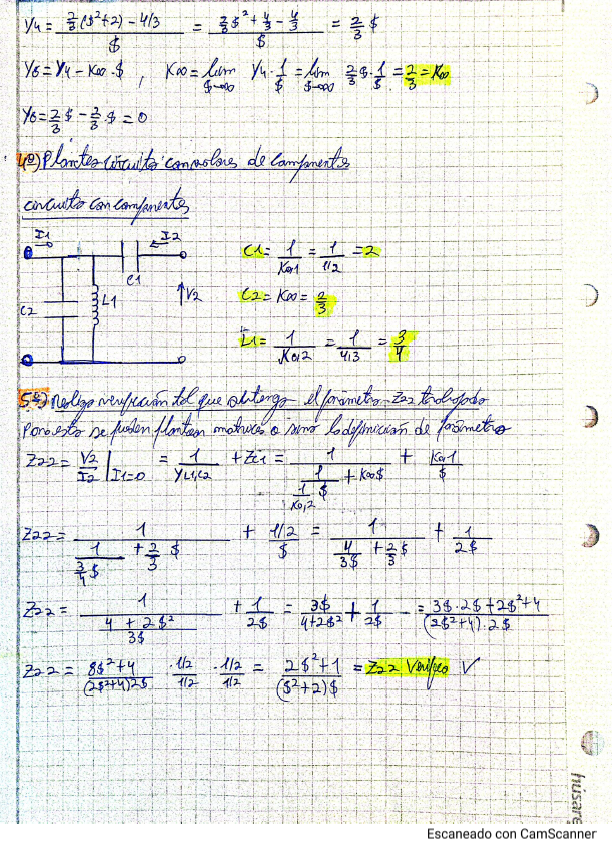 Y4 = (2/3($²+2) - 4/3)/$ = (2/3 $² + 4/3 - 4/3)/$ = 2/3 $
Y6 = Y4 - K∞.$ , K∞ = lim $→∞ Y4.1/$ = lim $→∞ 2/3 $.1/$ = 2/3 = K∞
Y6 = 2/3 $ - 2/3 $ = 0
4º) Plantes circuito con valores de componentes
circuito con componentes
I1 I2
C1 = 1/K0,1 = 1/1/2 = 2
C1
C2 L1 V2
C2 = K∞ = 2/3
L1 = 1/K0,2 = 1/4/3 = 3/4
5º) realizo verificación tal que obtenga el parámetro Z22 trabajado
Para esto se pueden plantear matrices o sino la definición de parámetros
Z22 = V2/I2 | I1=0 = 1/YL1,C2 + ZC1 = 1/(1/(1/K0,2 $) + K∞$) + K0,1/$
Z22 = 1/(1/(3/4 $) + 2/3 $) + 1/2/$ = 1/(4/3$ + 2/3 $) + 1/2$
Z22 = 1/((4 + 2$²)/3$) + 1/2$ = 3$/(4+2$²) + 1/2$ = (3$.2$ + 2$² + 4)/((2$²+4).2$)
Z22 = (8$²+4)/((2$²+4)2$) . 1/2/1/2 . 1/2/1/2 = (2$²+1)/(($²+2)$) = Z22 Verifico ✓
husares
Escaneado con CamScanner